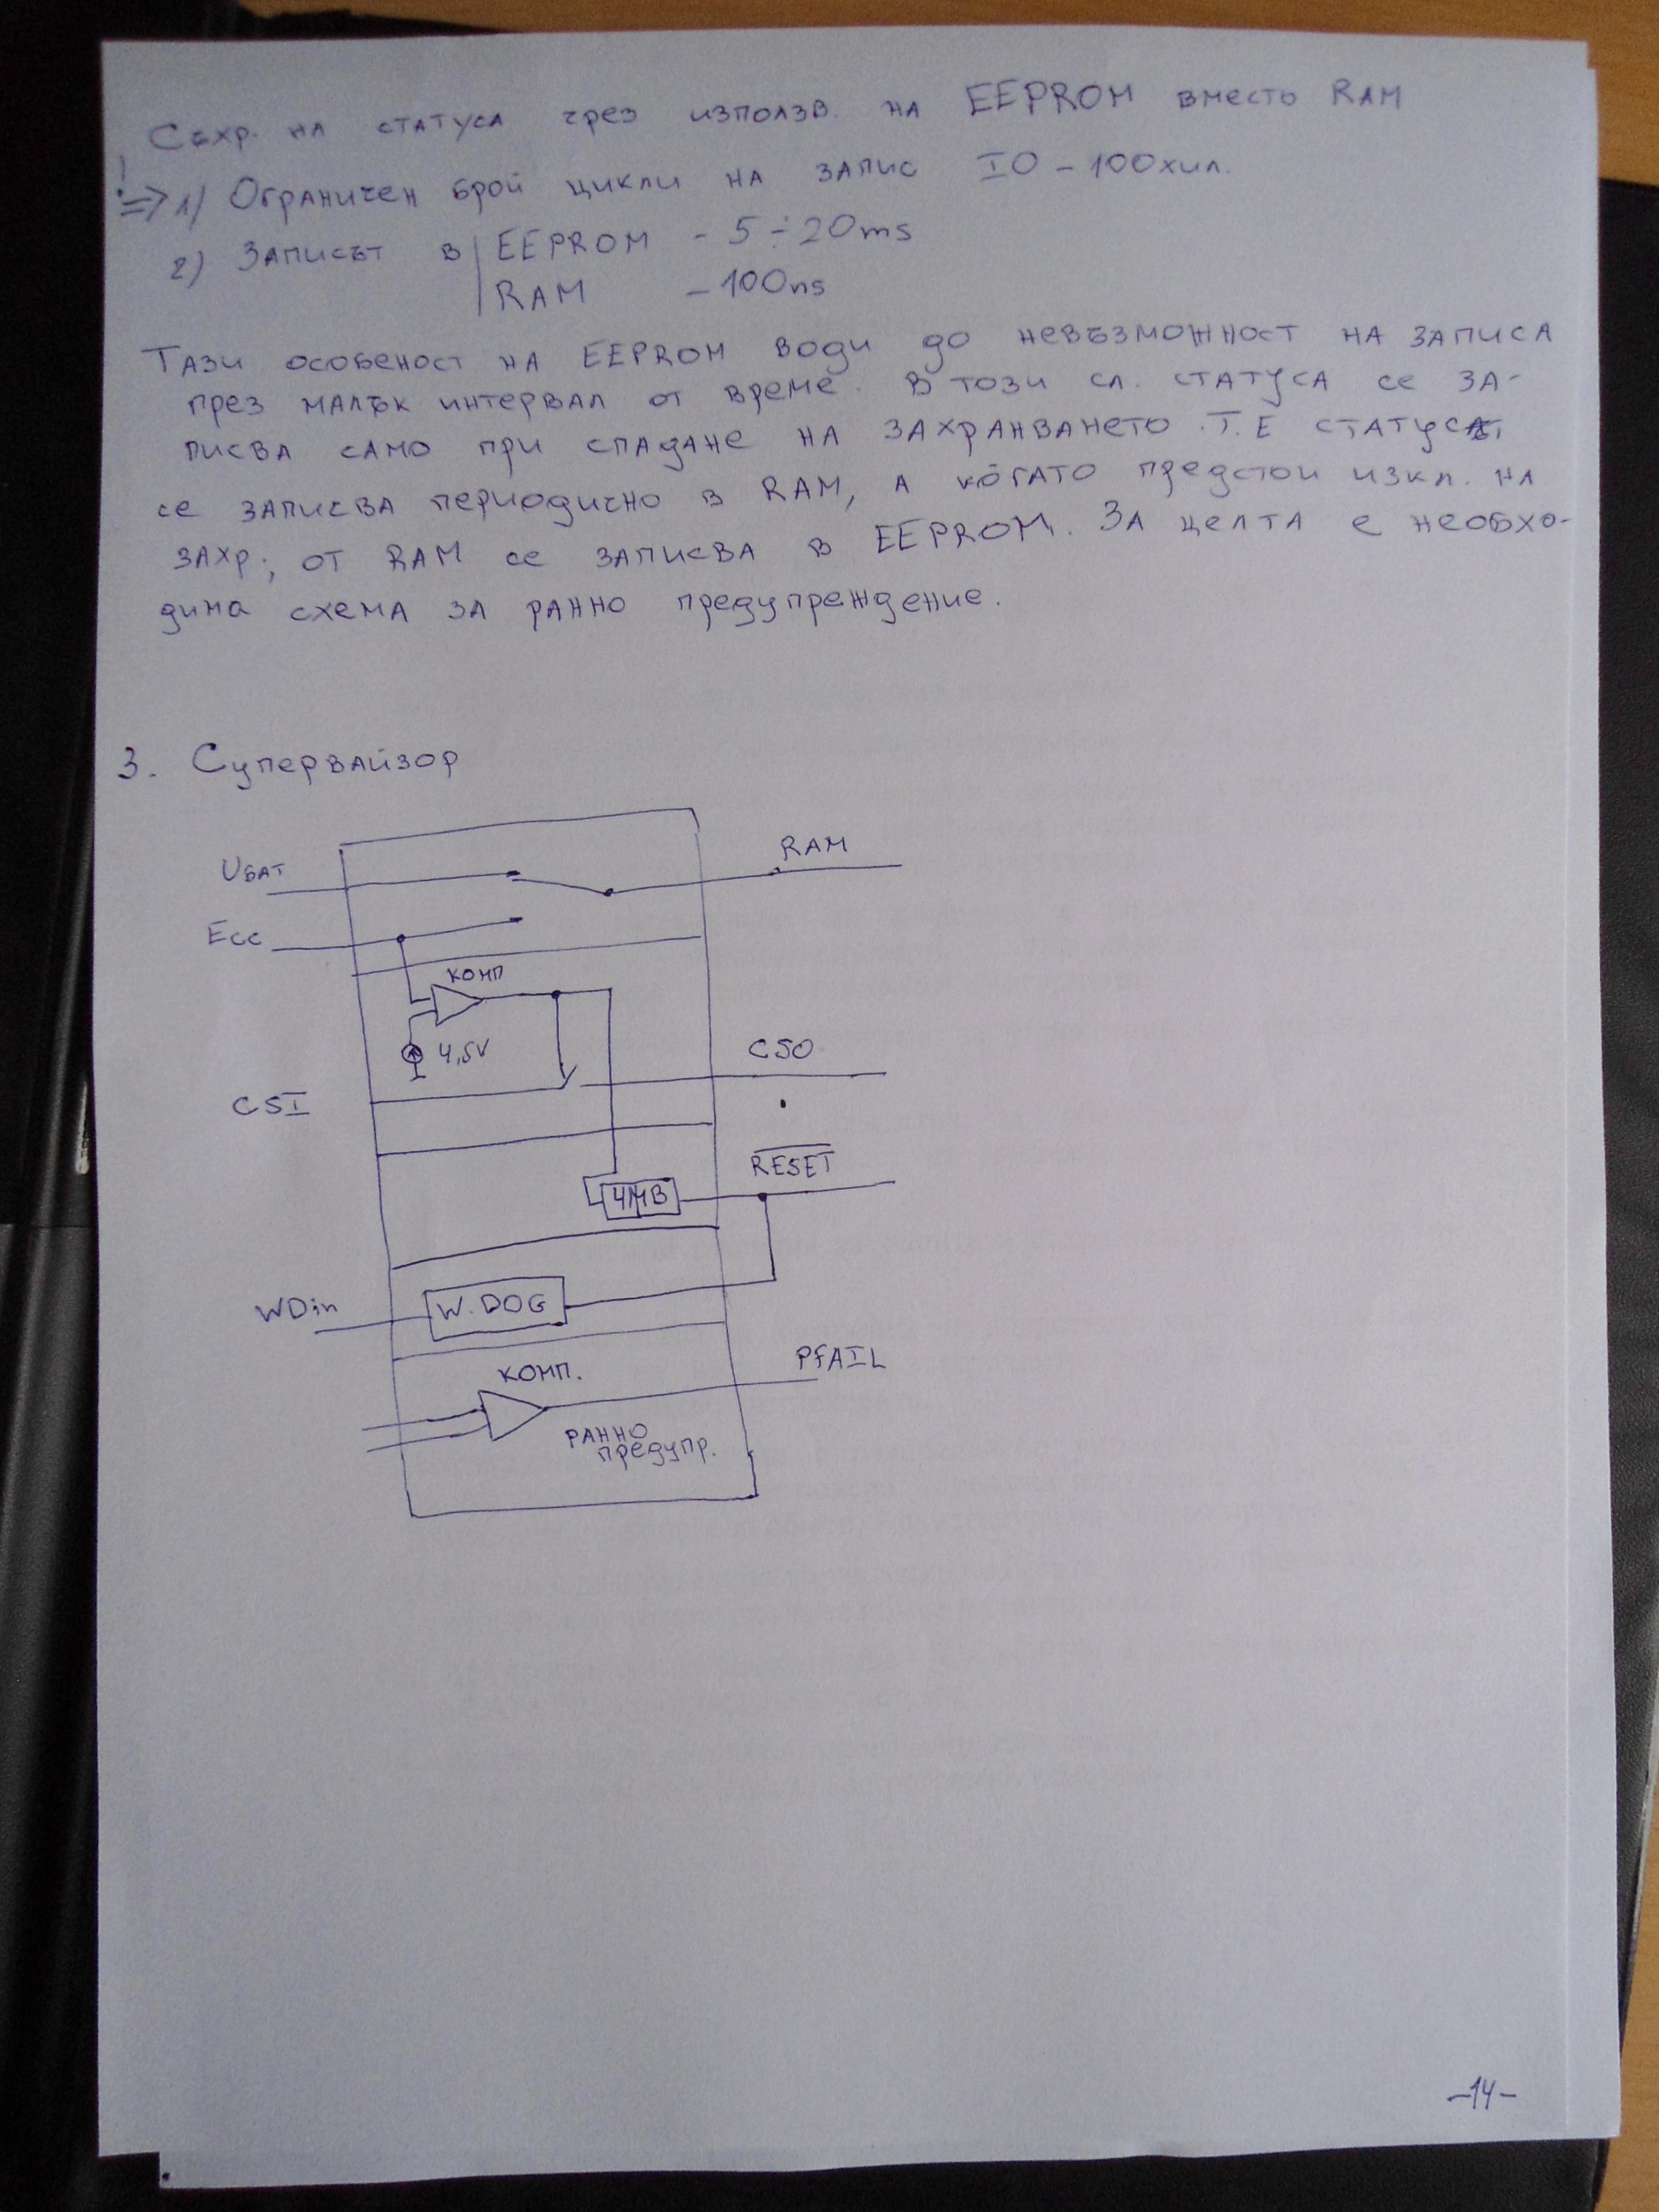 Съхр. на статуса чрез използв. на EEPROM вместо RAM
! => 1) Ограничен брой цикли на запис 10 - 100хил.
2) Записът в | EEPROM - 5 ÷ 20ms
| RAM - 100ns
Тази особеност на EEPROM води до невъзможност на записа
през малък интервал от време. В този сл. статуса се за-
писва само при спадане на захранването. Т.Е статусът
се записва периодично в RAM, а когато предстои изкл. на
захр., от RAM се записва в EEPROM. За целта е необхо-
дима схема за ранно предупреждение.
3. Супервайзор
Uбат
RAM
Ecc
комп
4,5V
CSO
CSI
RESET
ЧМВ
WDin
W. DOG
комп.
PFAIL
ранно
предупр.
-14-